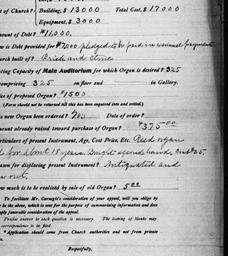 of Church? Building, $13000 Total Cost, $17000
Equipment, $3000
Amount of Debt? $11,000.
is Debt provided for $7000 pledged to be paid in annual payments
Church built of? Brick and stone
Seating Capacity of Main Auditorium for which Organ is desired? 325
comprising 325 on floor and in Gallery.
Price of proposed Organ? $1500
(Form should not be returned till this has been enquired into and settled.)
new Organ been ordered? No Date of order?
Amount already raised toward purchase of Organ? $375.00
Particulars of present Instrument, Age, Cost Price, Etc. Reed organ
about 18 years. Bought second hand, Cost $25.
Reason for displacing present Instrument? Antiquated and
out.
How much is to be realized by sale of old Organ? 5.00
To facilitate Mr. Carnegie's consideration of your appeal, will you oblige by
in the sheet, which is sent for the purpose of summarizing information and does
imply favorable consideration of the appeal.
Precise answer to each question is necessary. The leaving of blanks may
correspondence to be filed.
Application should come from Church authorities and not from private
Respectfully,